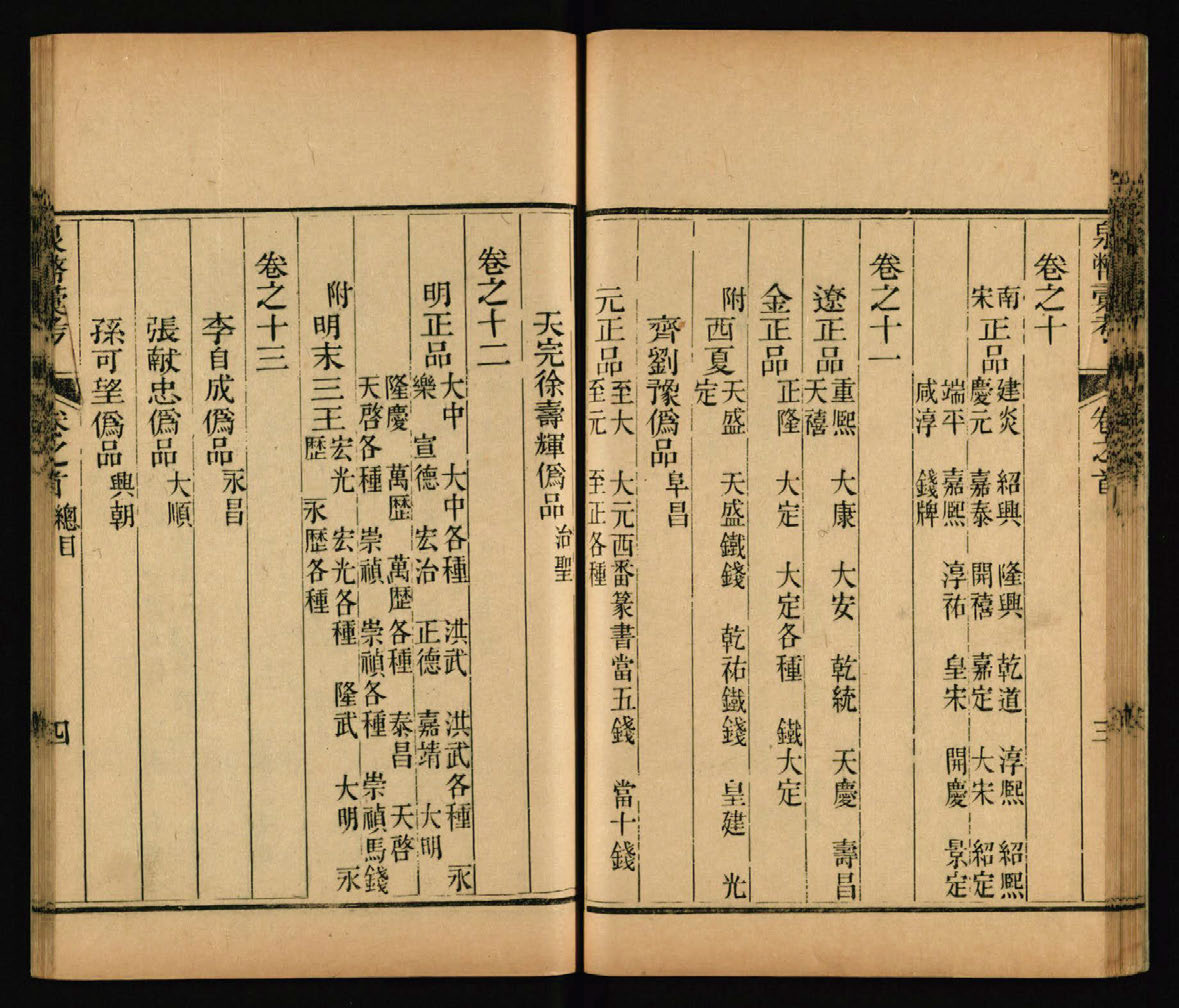 泉幣彙考 卷之首 三
卷之十
南宋正品 建炎 紹興 隆興 乾道 淳熙 紹熙
慶元 嘉泰 開禧 嘉定 大宋 紹定
端平 嘉熙 淳祐 皇宋 開慶 景定
咸淳 錢牌
卷之十一
遼正品 重熙 大康 大安 乾統 天慶 壽昌
天禧
金正品 正隆 大定 大定各種 鐵大定
附西夏 天盛 天盛鐵錢 乾祐鐵錢 皇建 光
定
齊劉豫僞品 阜昌
元正品 至大 大元西番篆書當五錢 當十錢
至元 至正各種
天完徐壽輝僞品 治聖
卷之十二
明正品 大中 大中各種 洪武 洪武各種 永
樂 宣德 宏治 正德 嘉靖 大明
隆慶 萬歷 萬歷各種 泰昌 天啓
天啓各種 崇禎 崇禎各種 崇禎馬錢
附明末三王 宏光 宏光各種 隆武 大明 永
歷 永歷各種
卷之十三
李自成僞品 永昌
張獻忠僞品 大順
孫可望僞品 興朝
泉幣彙考 卷之首 總目 四